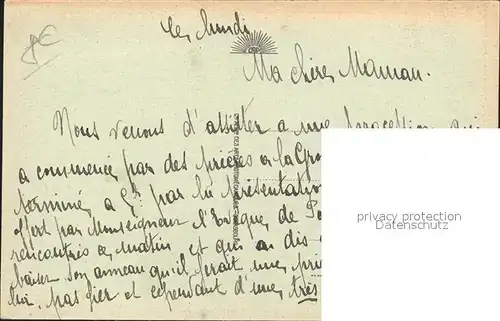 Ce Lundi
Ma chère Maman.
Nous venons d'assister a une procession qui
a commencé par des prières a la Gro
terminé a par la présentatio
offert par Monseigneur l'Evêque de
rencontrés ce matin et qui a dis
baiser son anneau qu'il ferait une pri
lui, pas fier et cependant d'une très
privacy protection
Datenschutz